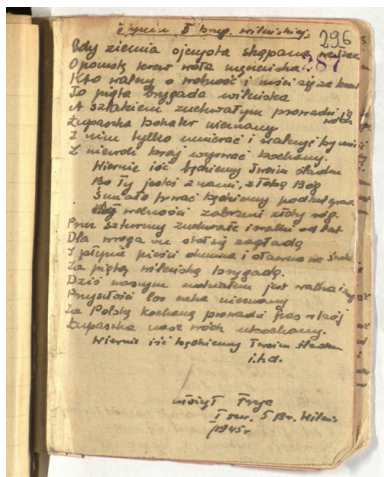 Hymn 5 bryg. wileńskiej
296
Gdy ziemia ojczysta skąpana
387
O pomstę krew woła męczeńska
Kto walczy o wolność i mści się za krew
To piąta brygada wileńska
A szlakiem zuchwałym prowadzi ją
wódz
Łupaszka bohater nieznany
Z nim tylko umierać i walczyć by
Z niewoli kraj wyrwać kochany.
Wiernie iść będziemy Twoim śladem
Bo Ty jesteś z nami, z Tobą Bóg
Śmiało trwać będziemy pod
wolności zabrzmi złoty róg.
Przez szturmy zuchwałe i walki od lat
Dla wroga on stał się zagładą
I płynie pieśń dumna i sławna na
Za piątą wileńską brygadą.
Dziś naszym nadziałem jest walka i
Przyszłość los czeka nieznany
Za Polskę kochaną prowadzi nas w bój
Łupaszka nasz wódz ukochany.
Wiernie iść będziemy Twoim śladem
i.t.d.
ułożył
I szw. 5 Br. Wileń
1945r